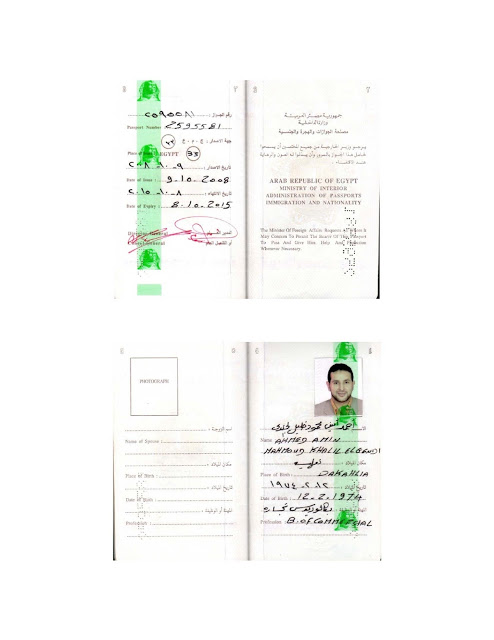 رقم الجواز : ٢٥٩٥٥٨١
Passport Number : 2595581
جهة الاصدار :
Place of Issue : EGYPT
تاريخ الاصدار : ٢٠٠٨ . ١٠ . ٩
Date of Issue : 9.10.2008
تاريخ الانتهاء : ٢٠١٥ . ١٠ . ٨
Date of Expiry : 8.10.2015
المدير العام
Director General
جمهورية مصر العربية
وزارة الداخلية
مصلحة الجوازات والهجرة والجنسية
ARAB REPUBLIC OF EGYPT
MINISTRY OF INTERIOR
ADMINISTRATION OF PASSPORTS
IMMIGRATION AND NATIONALITY
The Minister Of Foreign Affairs Requests All Whom It
May Concern To Permit The Bearer Of This Passport
To Pass And Give Him Help And Protection
Whenever Necessary.
PHOTOGRAPH
اسم الزوجة :
Name of Spouse :
مكان الميلاد :
Place of Birth :
تاريخ الميلاد :
Date of Birth :
المهنة أو الوظيفة :
Profession :
Name : AHMED AMIN
MAHMOUD KHALIL ELGENDI
مكان الميلاد :
Place of Birth : DAKAHLIA
تاريخ الميلاد : ١٩٧٤ . ٢ . ١٢
Date of Birth : 12.2.1974
المهنة أو الوظيفة : بكالوريوس تجارة
Profession : B. OF COMMERCIAL